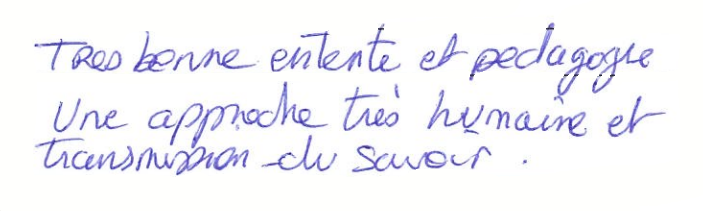 Tres bonne entente et pedagogue
Une approche très humaine et
transmission du savoir.